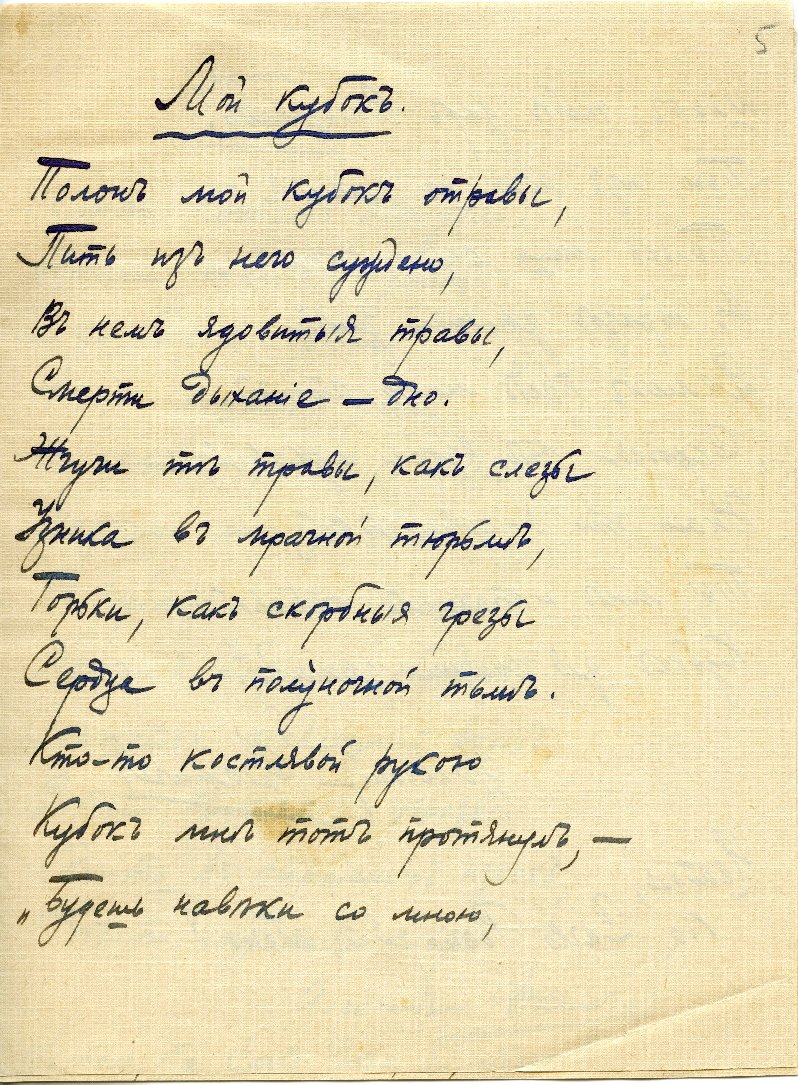 5
Мой кубокъ.
Полонъ мой кубокъ отравы,
Пить изъ него суждено,
Въ немъ ядовитыя травы,
Смерти дыханіе — дно.
Жгучи тѣ травы, какъ слезы
Узника въ мрачной тюрьмѣ,
Горьки, какъ скорбныя грезы
Сердца въ полуночной тьмѣ.
Кто-то костлявой рукою
Кубокъ мнѣ тотъ протянулъ, —
„Будешь навѣки со мною,